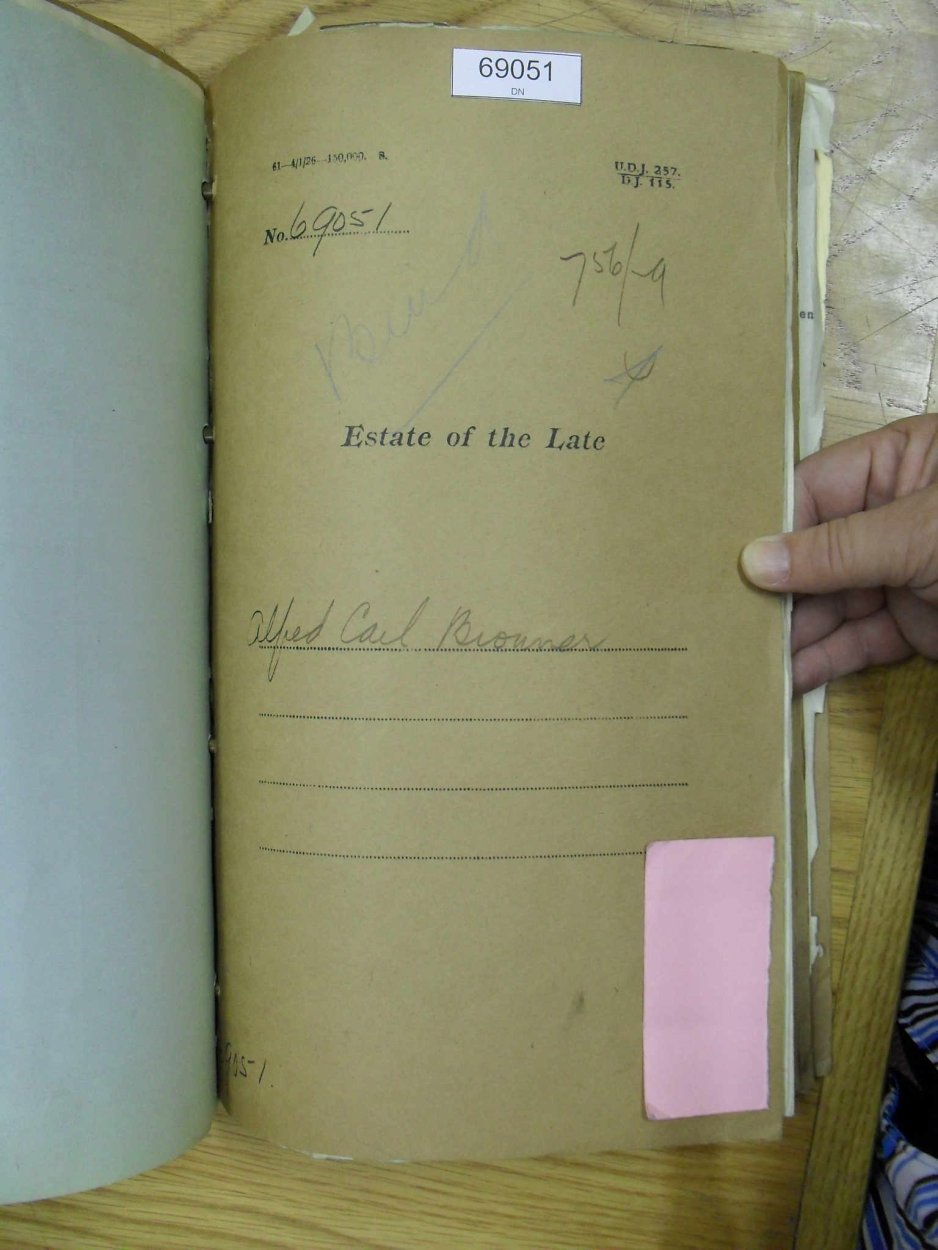 69051
DN
61—4/1/26—150,000. S.
U.D.J. 257.
D.J. 115.
No. 69051
756/-9
en
Estate of the Late
Alfred Carl Bronner
9051.